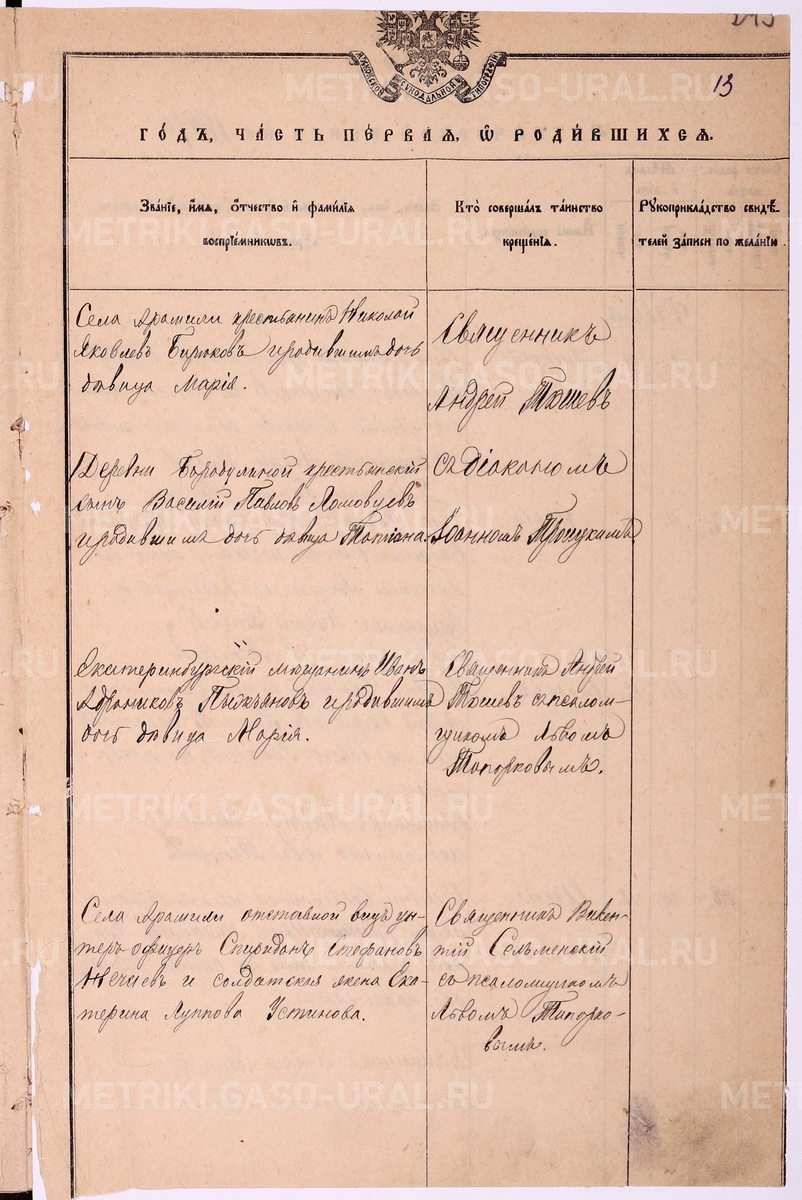 243
13
МОСКОВСКОЙ СѴНОДАЛЬНОЙ ТИПОГРАФІИ
ГО́ДЪ, ЧА́СТЬ ПЕ́РВАѦ, Ѡ҆ РОДИ́ВШИХСѦ.
Зва́нїе, и҆́мѧ, ѻ҆́тчество и҆ фами́лїѧ
воспрїе́мникѡвъ.
Кто̀ соверша́лъ та́инство
креще́нїѧ.
Рꙋкоприкла́дство свидѣ́-
телей за́писи по жела́нїю.
Села Арамили крестьянинъ Николай
Яковлевъ Бирюковъ и родившимъ дочь
дѣвица Марія.
Священникъ
Андрей Тюшевъ
Деревни Бородулиной крестьянскій
сынъ Василій Павловъ Ломовцевъ
и родившимъ дочь дѣвица Татіана.
съ діакономъ
Іоанномъ Троицкимъ.
Екатеринбургскій мѣщанинъ Иванъ
Андрониковъ Пьянковъ и родившимъ
дочь дѣвица Марія.
Священникъ Андрей
Тюшевъ съ псалом-
щикомъ Львомъ
Топорковымъ.
Села Арамили отставной вице ун-
теръ-офицеръ Спиридонъ Стефановъ
Нечаевъ и солдатская жена Ека-
терина Луппова Устинова.
Священникъ Викен-
тій Сельменскій
съ псаломщикомъ
Львомъ Топорко-
вымъ.
METRIKI.GASO-URAL.RU